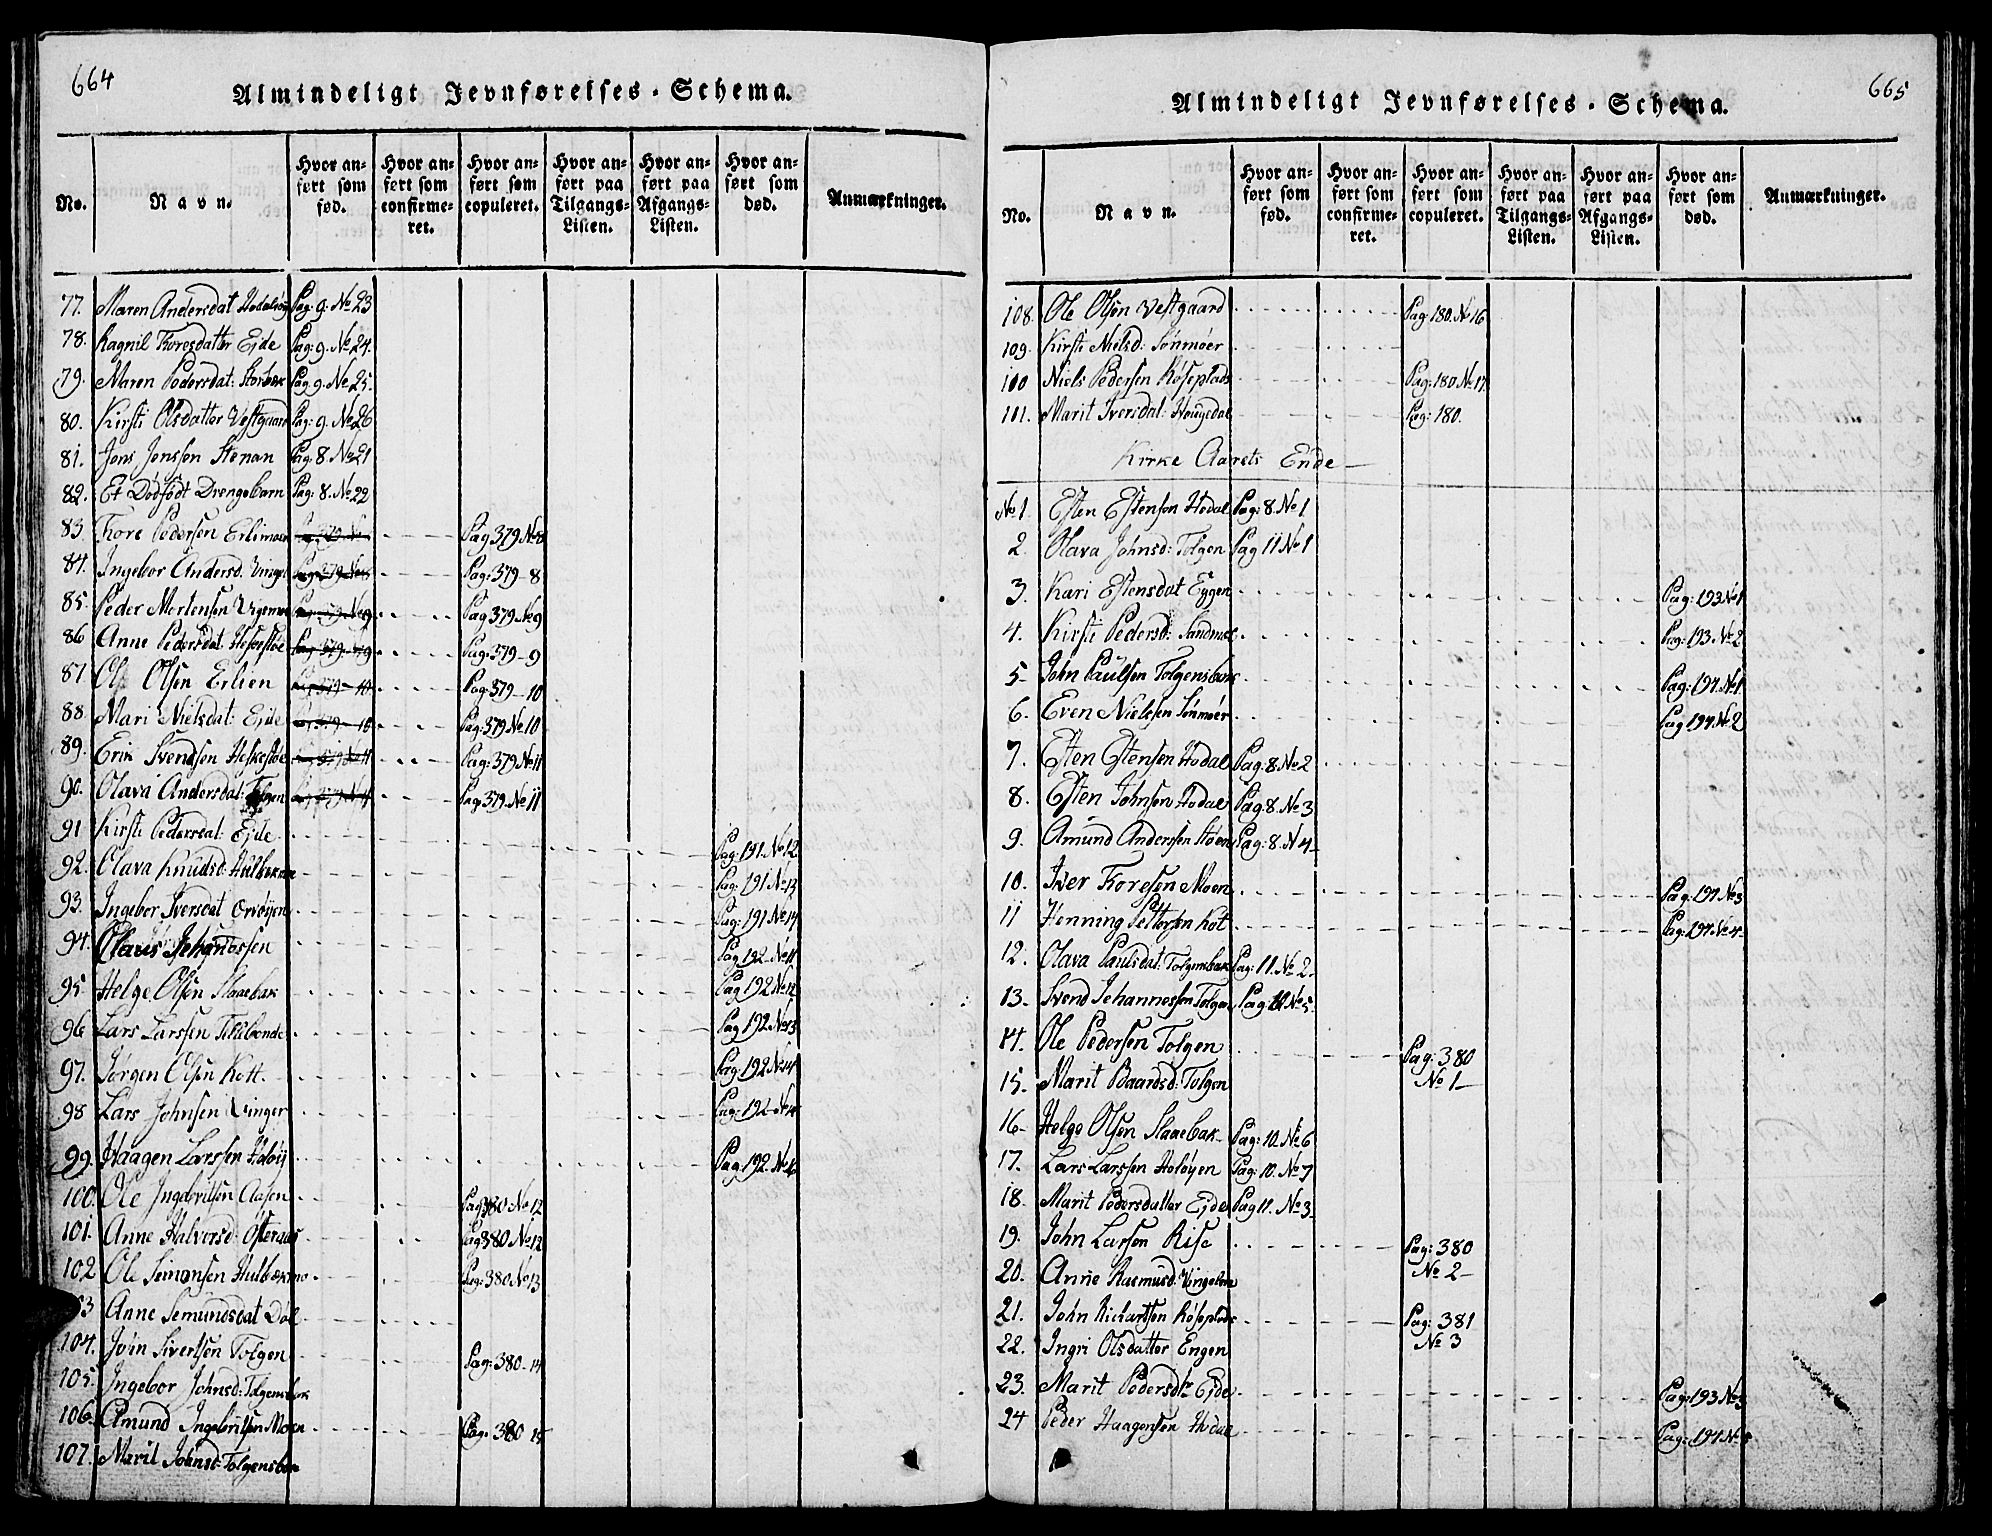 664
Almindeligt Jevnførelses-Schema.
No. Navn. Hvor anført som fød. Hvor anført som confirmeret. Hvor anført som copuleret. Hvor anført paa Tilgangs-Listen. Hvor anført paa Afgangs-Listen. Hvor anført som død. Anmærkninger.
77. Maren Andersdat Pag: 9. No 23
78. Ragnil Toresdatter Eide Pag: 9. No 24.
79. Maren Pedersdat: Storbæk Pag 9. No 25.
80. Kirsti Olsdatter Vestgaard Pag: 9. No 26
81. Jens Jensen Stenan Pag: 8. No 21
82. Et Dødfødt Drengebarn Pag: 8. No 22
83. Tore Pedersen Erlimoen Pag 379 No 8
84. Ingebor Andersd. Pag: 379-8
85. Peder Mortensen Pag 379 No 9
86 Anne Pedersdat Pag: 379-9
87 Ole Olsen Erlien Pag: 379-10
88. Mari Nielsdat: Eide Pag: 379 No 10
89. Erik Svendsen Pag: 379 No 11
90. Olava Andersdat: Tolgen Pag: 379 No 11
91 Kirsti Pedersdat: Eide Pag: 191. No 12
92. Olava Knudsd: Pag: 191 No 13
93. Ingebor Iversdat Orvøyen Pag: 191 No 14
94. Olaus Johannessen Pag 192 No 11
95 Helge Olsen Slaaebak Pag 192 No 12
96 Lars Larssen Pag 192 No 13
97. Jørgen Olsen Kott. Pag: 192 No 14
98 Lars Johnsen Vinger Pag: 192
99. Haagen Larssen Holøij Pag 192 No
100. Ole Ingebritsen Aasen Pag 380 No 12
101. Anne Halvorsd: Osteraas Pag 380 No 12
102 Ole Simonsen Pag: 380 No 13
Anne Semundsdat Døl
104. John Sivertsen Tolgen Pag: 380-14
105. Ingebor Johnsd: Tolgensbak
106. Amund Ingebritsen Moen Pag: 380 15
107. Marit Johnsd: Tolgensbak
665
Almindeligt Jevnførelses-Schema.
No. Navn. Hvor anført som fød. Hvor anført som confirmeret. Hvor anført som copuleret. Hvor anført paa Tilgangs-Listen. Hvor anført paa Afgangs-Listen. Hvor anført som død. Anmærkninger.
108. Ole Olsen Vestgaard Pag 180. No 16
109. Kirsti Nielsd: Sønmøer
100 Niels Pedersen Røseplads Pag: 180 No 17
101. Marit Iversdat: Hougedal Pag: 180.
Kirke Aarets Ende
No 1. Esten Estensen Hodal Pag: 8. No 1
2. Olava Johnsd: Tolgen Pag 11 No 1
3. Kari Estensdat Eggen Pag: 193 No 1
4. Kirsti Pedersd: Pag: 193. No 2
5- John Paulsen Tolgensbak Pag: 194. No 1
6. Even Nielssen Sønmøer Pag 194. No 2
7. Esten Estensen Hodal Pag: 8. No 2
8. Esten Johnsen Hodal Pag: 8. No 3
9. Amund Anderssen Pag: 8. N 4-
10. Iver Toresen Moen Pag: 194 No 3
11 Henning Pettersen Kot Pag: 194 No 4-
12. Olava Paulsdat: Tolgensbak Pag: 11. No 2.
13- Svend Johannessen Tolgen Pag 10 No 5-
14. Ole Pedersen Tolgen Pag: 380
15- Marit Baardsd: Tolgen No 1-
16- Helge Olsen Slaaebak Pag: 10. No 6
17. Lars Larssen Holøyen Pag: 10. No 7
18. Marit Pedersdatter Eide Pag 11. No 3-
19. John Larsen Rise Pag: 380
20. Anne Rasmusd: No 2-
21. John Richartsen Røseplads Pag: 381
22. Ingri Olsdatter Engen No 3
23. Marit Pedersdtr Eide Pag: 193 No 3
24 Peder Haagensen Hodal Pag: 194 No